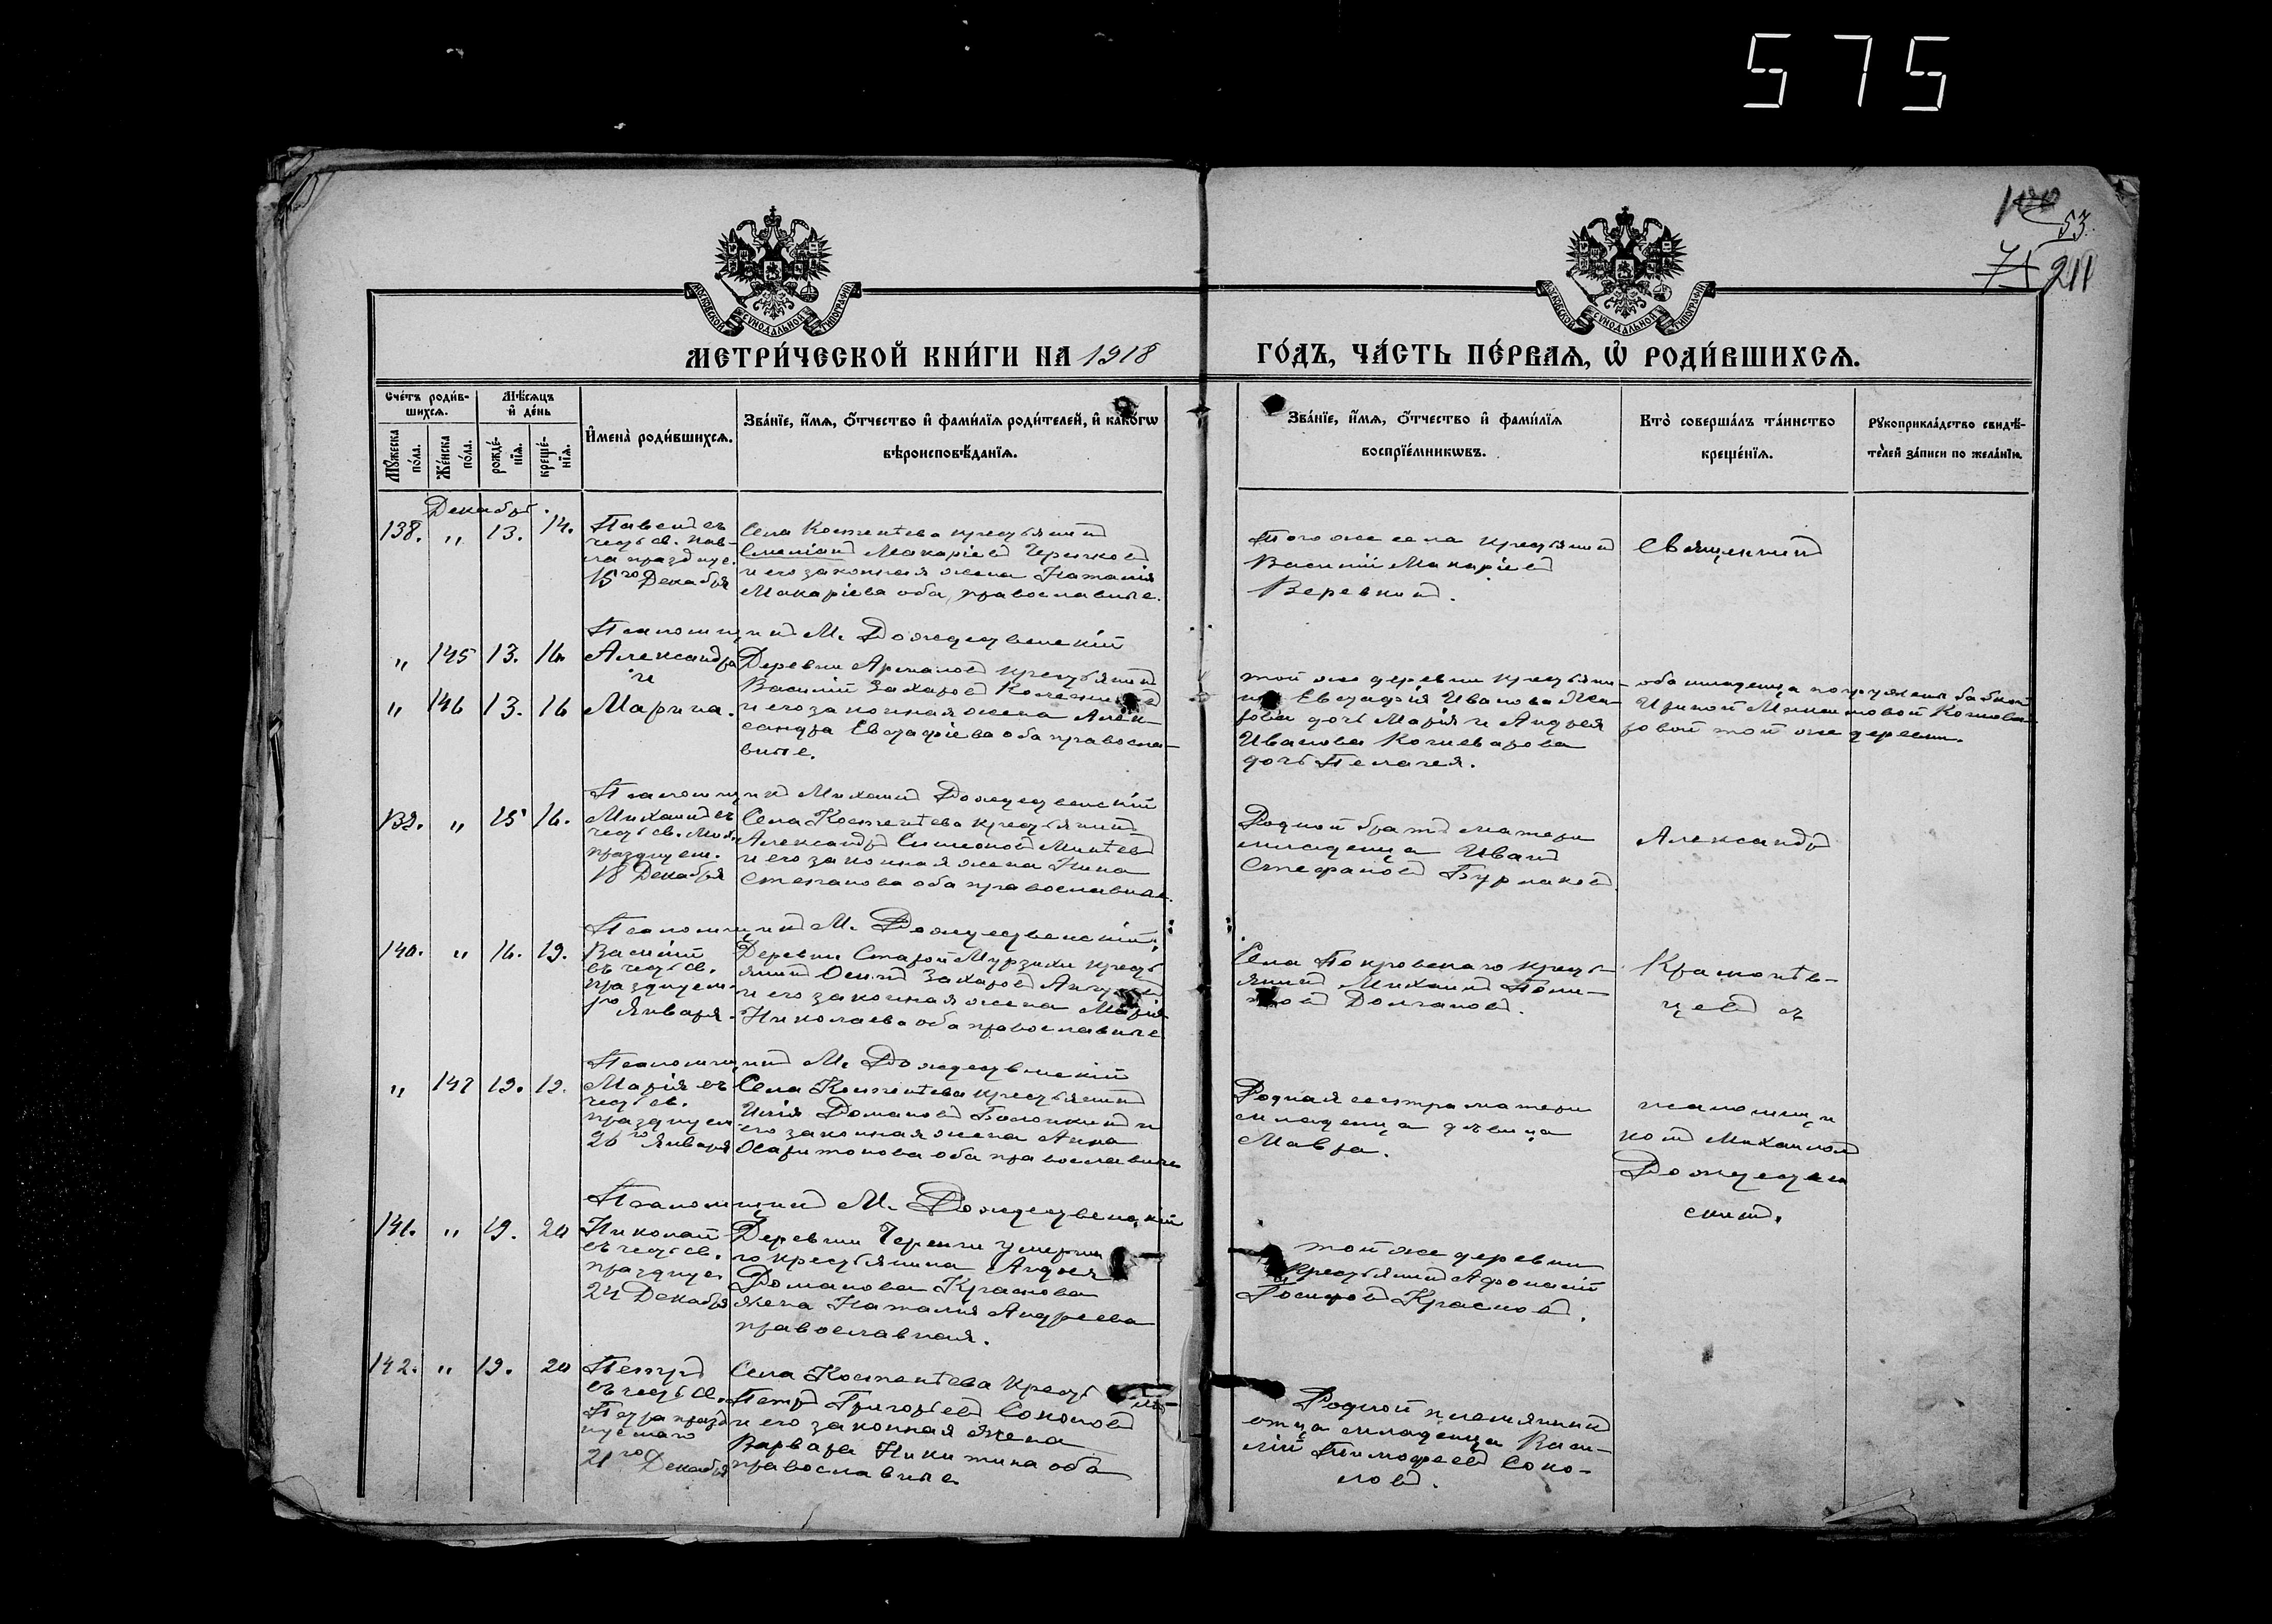 575
100
53
75 211
МОСКОВСКОЙ СѴНОДАЛЬНОЙ ТИПОГРАФІИ
МОСКОВСКОЙ СѴНОДАЛЬНОЙ ТИПОГРАФІИ
МЕТРИ́ЧЕСКОЙ КНИ́ГИ НА 1918
ГО́ДЪ, ЧА́СТЬ ПЕ́РВАѦ, Ѡ҆ РОДИ́ВШИХСѦ.
Сче́тъ роди́в-
шихсѧ.
Мѣ́сѧцъ
и҆ де́нь
Мꙋ́жеска
по́ла.
Же́нска
по́ла.
рожде́-
нїѧ.
креще́-
нїѧ.
И҆мена̀ роди́вшихсѧ.
Зва́нїе, и҆́мѧ, ѻ҆́тчество и҆ фами́лїѧ роди́телей, и҆ како́гѡ
вѣроисповѣ́данїѧ.
Зва́нїе, и҆́мѧ, ѻ҆́тчество и҆ фами́лїѧ
воспрїе́мникѡвъ.
Кто̀ соверша́лъ та́инство
креще́нїѧ.
Рꙋкоприкла́дство свидѣ́-
телей за́писи по жела́нїю.
Декабрь.
138. " 13. 14.
Павелъ въ
честь св. Пав-
ла празднуе.
15го Декабря
Села Костенѣева крестьянинъ
Емеліанъ Макаріевъ
и его законная жена Наталія
Макаріева оба православные.
Того же села крестьянинъ
Василій Макаріевъ
Веревкинъ.
Священникъ
Псаломщикъ М. Рождественскій
" 145 13. 16
Александра
и
" 146 13. 16
Марина.
Деревни крестьянинъ
Василій Захаровъ
и его законная жена Алек-
сандра Евстафіева оба правосла-
вные.
той же деревни крестьяни-
на Евстафія Иванова
дочь Марія и Андрея
Иванова Кочеварова
дочь Пелагея.
оба младенца погружены бабкой
Ириной
той же деревни.
Псаломщикъ Михаилъ Рождественскій
139. " 15 16.
Михаилъ въ
честь св. Мих.
празднуем.
18 Декабря
Села Костенѣева крестьянинъ
Александръ Симеоновъ
и его законная жена Нина
Степанова оба православные.
Родной братъ матери
младенца Иванъ
Стефановъ Бурлаковъ.
Александръ
Псаломщикъ М. Рождественскій.
140. " 16. 19.
Василій
въ честь св.
празднуем.
1го Января.
Деревни Старой Мурзихи кресть-
янинъ Осипъ Захаровъ
и его законная жена Марія
Николаева оба православные
Села Покровскаго кресть-
янинъ Михаилъ
Долгановъ.
Крамолѣв-
цевъ съ
Псаломщикъ М. Рождественскій
" 147 19. 19.
Марія въ
честь св.
празднуем
26го Января
Села Костенѣева крестьянинъ
Илія Романовъ и
его законная жена Анна
Харитонова оба православные
Родная сестра матери
младенца дѣвица
Мавра.
псаломщи-
комъ Михаиломъ
Рождествен
скимъ.
Псаломщикъ М. Рождественскій
141. " 19. 20
Николай
въ честь св.
празднуе
24 Декабря
Деревни Черенги умерша
го крестьянина Андрея
Романова Краснова
жена Наталія Андреева
православная.
той же деревни
крестьянинъ Афонасій
Красновъ.
142. " 19. 20
Петръ
въ честь св.
Петра празд
нуемаго
21го Декабря
Села Костенѣева крестьянинъ
Петръ Григорьевъ Соколовъ
и его законная жена
Варвара Никитина оба
православные
Родной племянникъ
отца младенца Васи-
лій Тимофеевъ Соко-
ловъ.